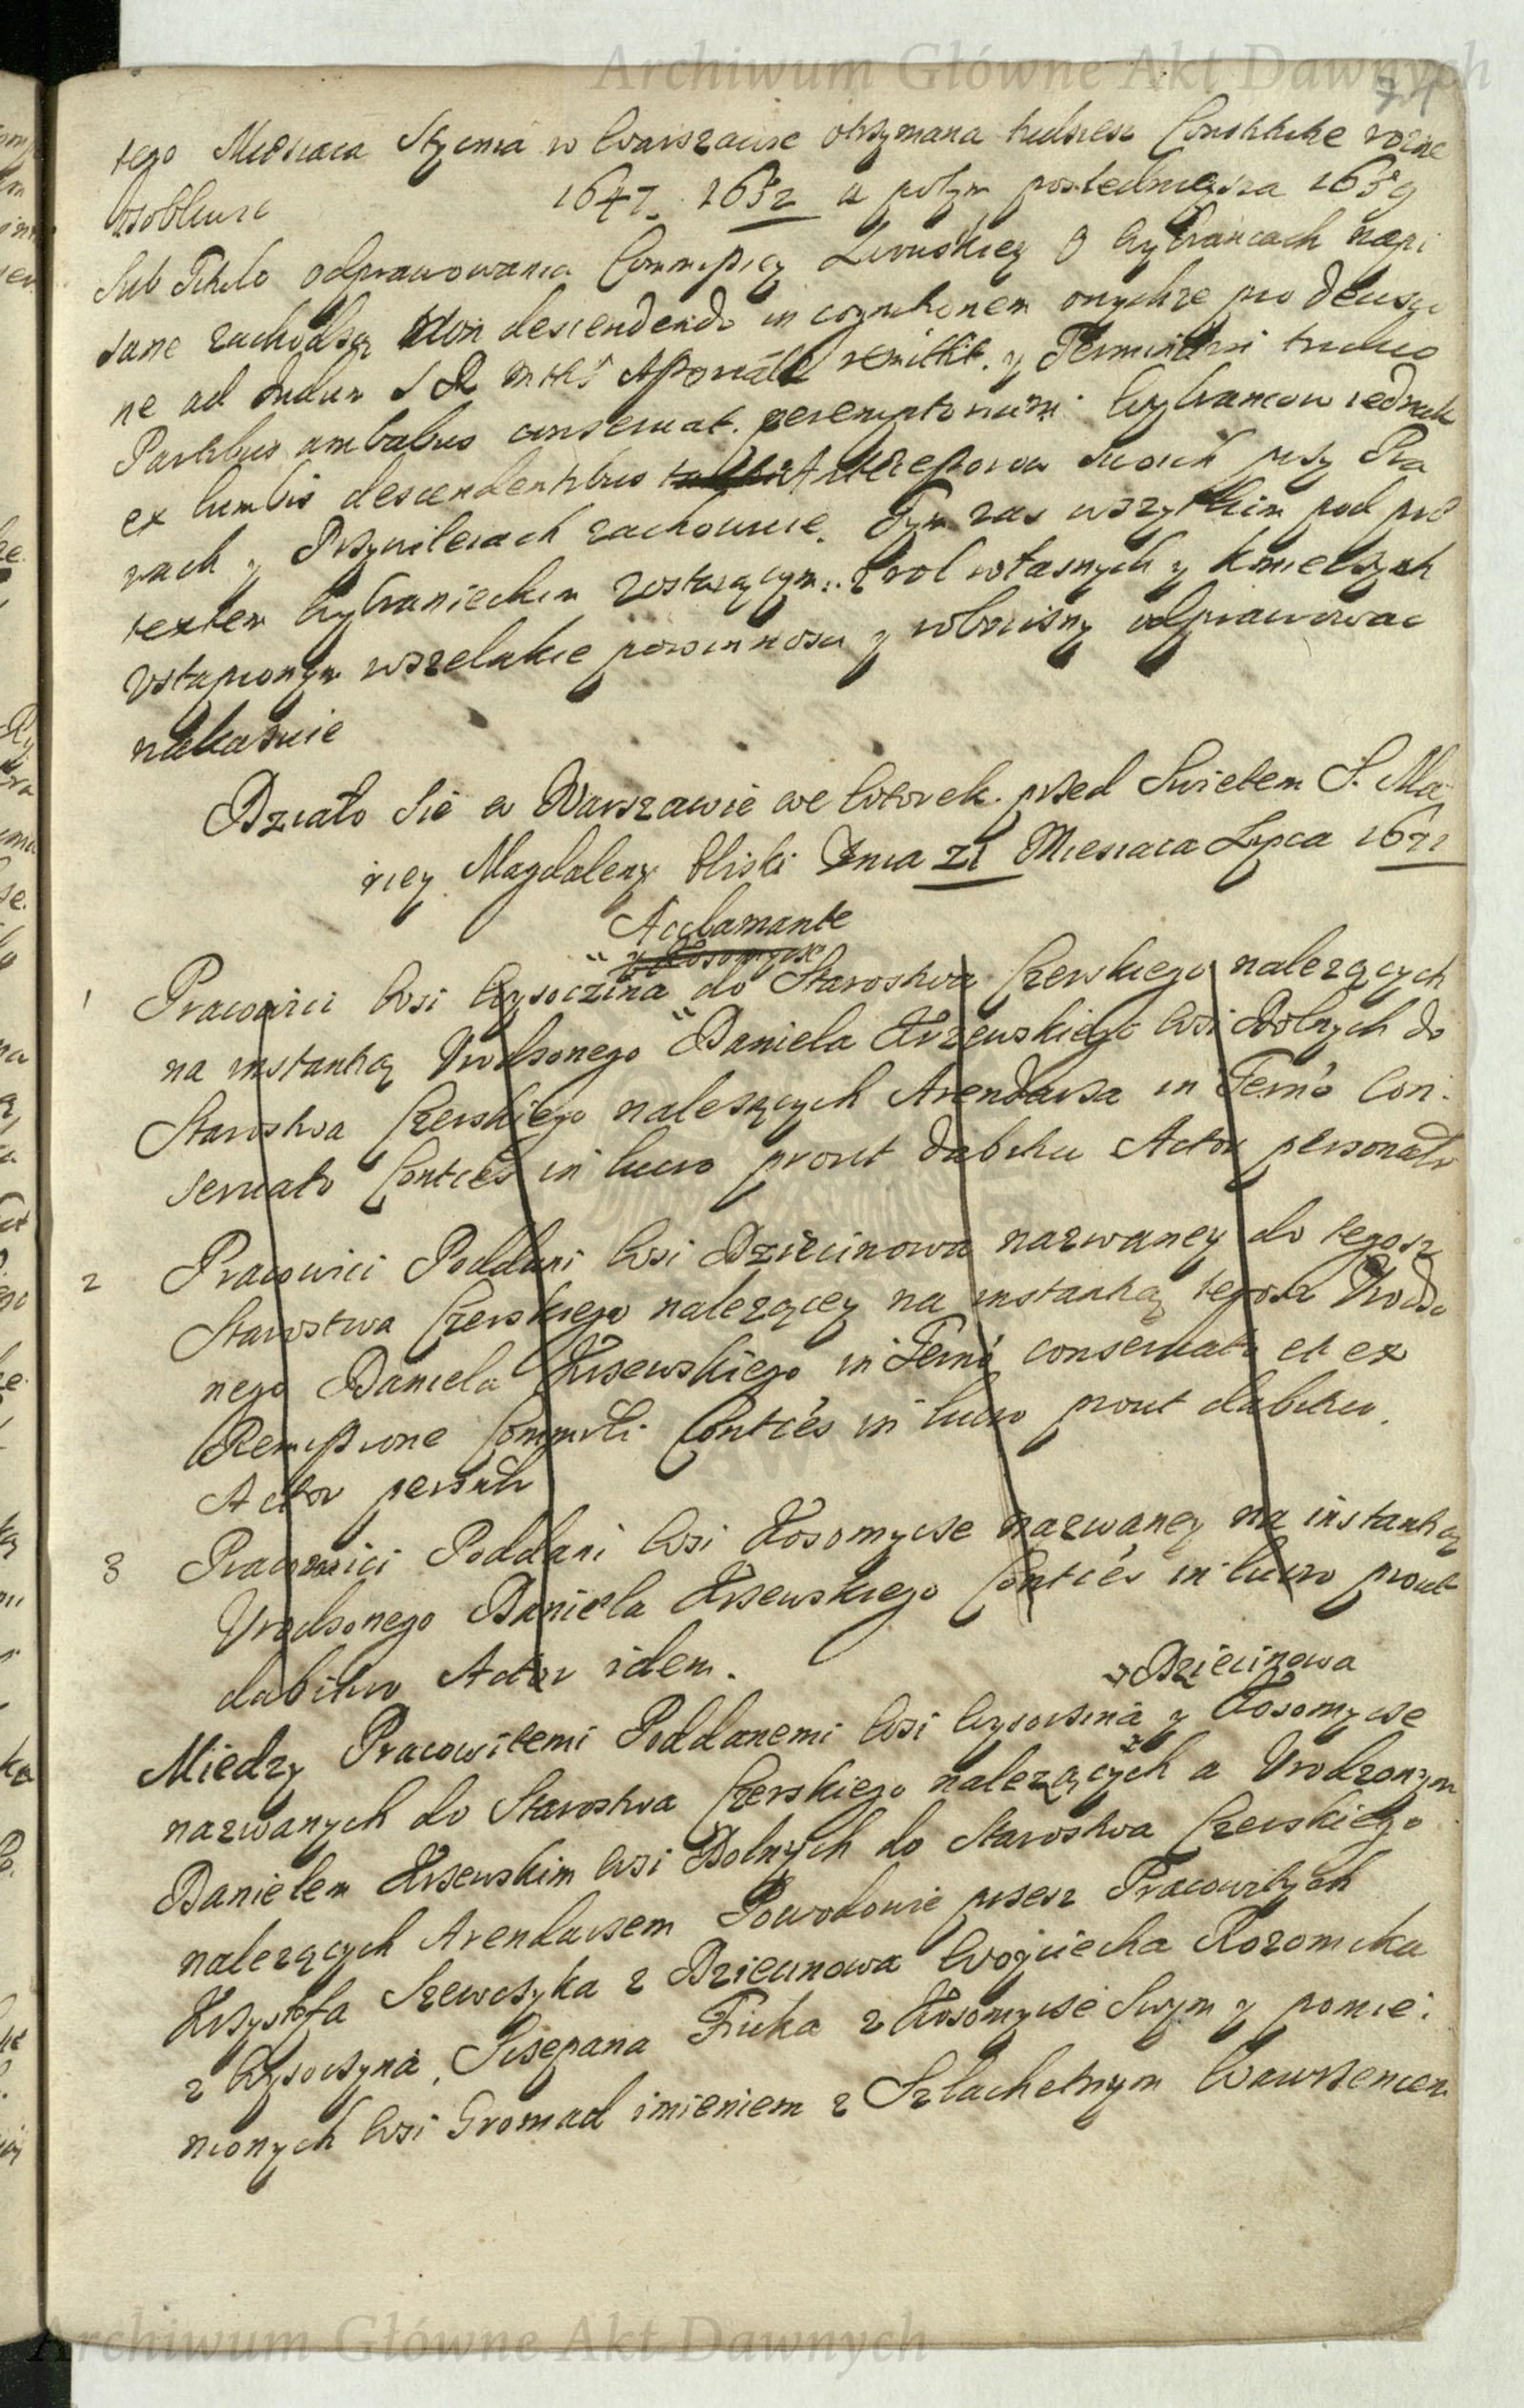 Archiwum Główne Akt Dawnych
74
tego Miesiaca Stycnia w Warszawie otrzymana tudziesz Constitutie rozne
osobliwie 1647. 1632 a potym posledniejsza 1659
sub Titulo odprawowania Commissiey O Wybrancach napi
sane zachodzą Non descendendo in cognitionem onychze pro decisio
ne ad Iudm S R Mttis remittit. y Terminum
Partibus ambabus conservat. peremptorium Wybrancow iednak
ex lumbis descendentibus Antecessorow swoich przy Pra
wach y Przywileiach zachowuie. Tym zas wszytkim pod pre
textem Wybranieckim zostaiącym. z rol własnych y kmieczych
Ustapionym wszelakie powinnosci y robocizny odprawowac
nakazuie
Działo Sie w Warszawie we Wtorek przed Swietem S. Ma
riey Magdaleny bliski Dnia 21 Miesiaca Lypca 1671
Acclamante
1 Pracowici Wsi Wysoczina do Starostwa Czerskiego nalezących
na instantią Urodzonego Daniela Krzewskiego Wsi Dolnych do
Starostwa Czerskiego nalezących Arendarza in Termo Con:
servato Conties in lucro prout dabitur Actor personalr
2 Pracowici Poddani Wsi Dziecinowa nazwaney do tegosz
Starostwa Czerskiego nalezącey na instantią tegosz Urodzo
nego Daniela Krzewskiego in Termo conservato et ex
Remissione Conties in lucro prout dabitur.
Actor persnlr
3 Pracowici Poddani Wsi Kosomycse nazwaney na instantią
Urodzonego Daniela Krzewskiego Conties in lucro prout
dabitur Actor idem.
z Dziecinowa
Miedzy Pracowitemi Poddanemi Wsi Wysoczina y Kosomycse
nazwanych do Starostwa Czerskiego nalezących a Urodzonym
Danielem Krzewskim Wsi Dolnych do Starostwa Czerskiego
nalezących Arendarzem Powodowie przesz Pracowitych
Krzysztofa Szewczyka z Dziecinowa Woyciecha Rozomka
z Wysoczyna, Sczepana Fruka z Kosomycse Swym y pomie:
nionych Wsi Gromad imieniem z Szlachetnym Wawrzencem
Archiwum Główne Akt Dawnych